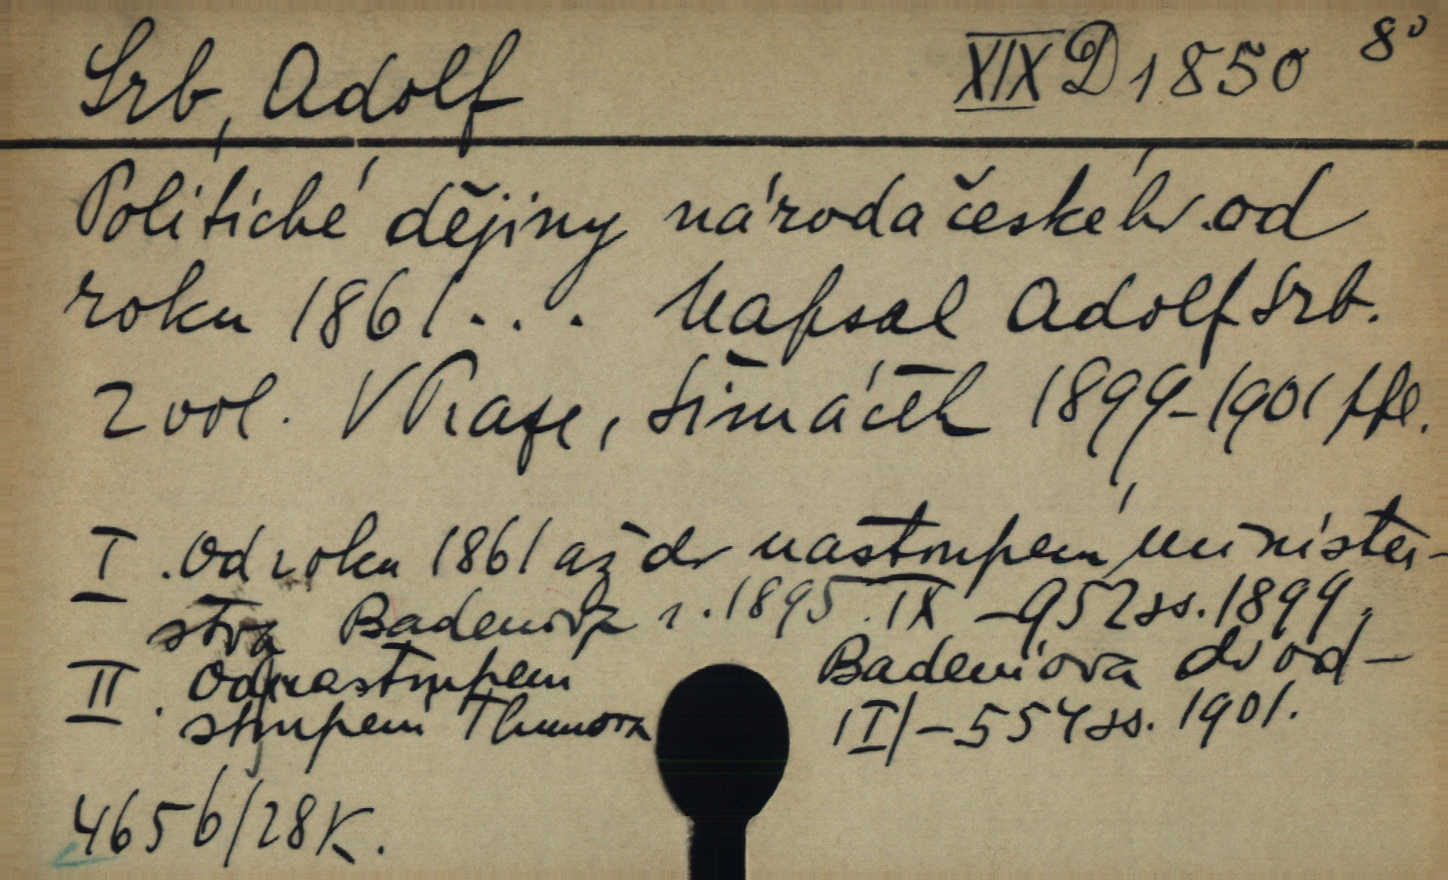 Srb, Adolf XIX D 1850 8°
Politické dějiny národa českého od
roku 1861... Napsal Adolf Srb.
2 vol. V Praze, Šimáček 1899-1901 ppl.
I. Od roku 1861 až do nastoupení minister-
stva Badeniova r. 1895. IX - 952 ss. 1899.
II. Od nastoupení Badeniova do od-
stoupení Thunova |II| - 554 ss. 1901.
4656/28 K.